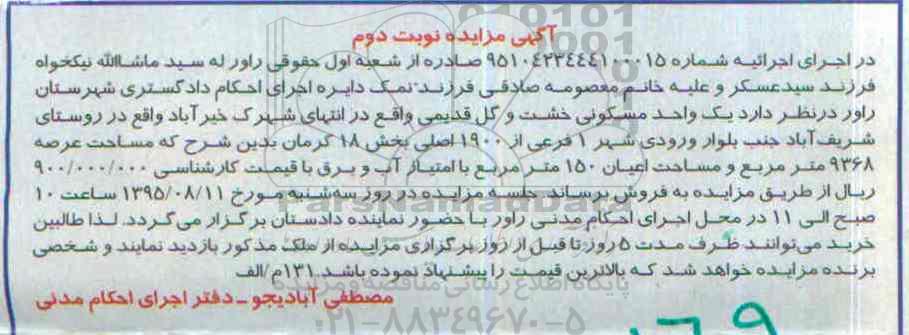 آگهی مزایده نوبت دوم
در اجرای اجرائیه شماره ۹۵۱۰۴۲۳۴۴۴۱۰۰۰۱۵ صادره از شعبه اول حقوقی راور له سید ماشااالله نیکخواه
فرزند سیدعسکر و علیه خانم معصومه صادقی فرزند نمک دایره اجرای احکام دادگستری شهرستان
راور درنظر دارد یک واحد مسکونی خشت و گل قدیمی واقع در انتهای شهرک خیرآباد واقع در روستای
شریف آباد جنب بلوار ورودی شهر ۱ فرعی از ۱۹۰۰ اصلی بخش ۱۸ کرمان بدین شرح که مساحت عرصه
۹۳۶۸ متر مربع و مساحت اعیان ۱۵۰ متر مربع با امتیاز آب و برق با قیمت کارشناسی ۹۰۰/۰۰۰/۰۰۰
ریال از طریق مزایده به فروش برساند جلسه مزایده در روز سه‌شنبه مورخ ۱۳۹۵/۰۸/۱۱ ساعت ۱۰
صبح الی ۱۱ در محل اجرای احکام مدنی راور با حضور نماینده دادستان برگزار می‌گردد. لذا طالبین
خرید می‌توانند ظرف مدت ۵ روز تا قبل از روز برگزاری مزایده از ملک مذکور بازدید نمایند و شخصی
برنده مزایده خواهد شد که بالاترین قیمت را پیشنهاد نموده باشد. ۱۳۱م/الف
مصطفی آبادیجو - دفتر اجرای احکام مدنی
ParsNamadData
پایگاه اطلاع رسانی مناقصه و مزایده
۰۲۱-۸۸۳۴۹۶۷۰-۵